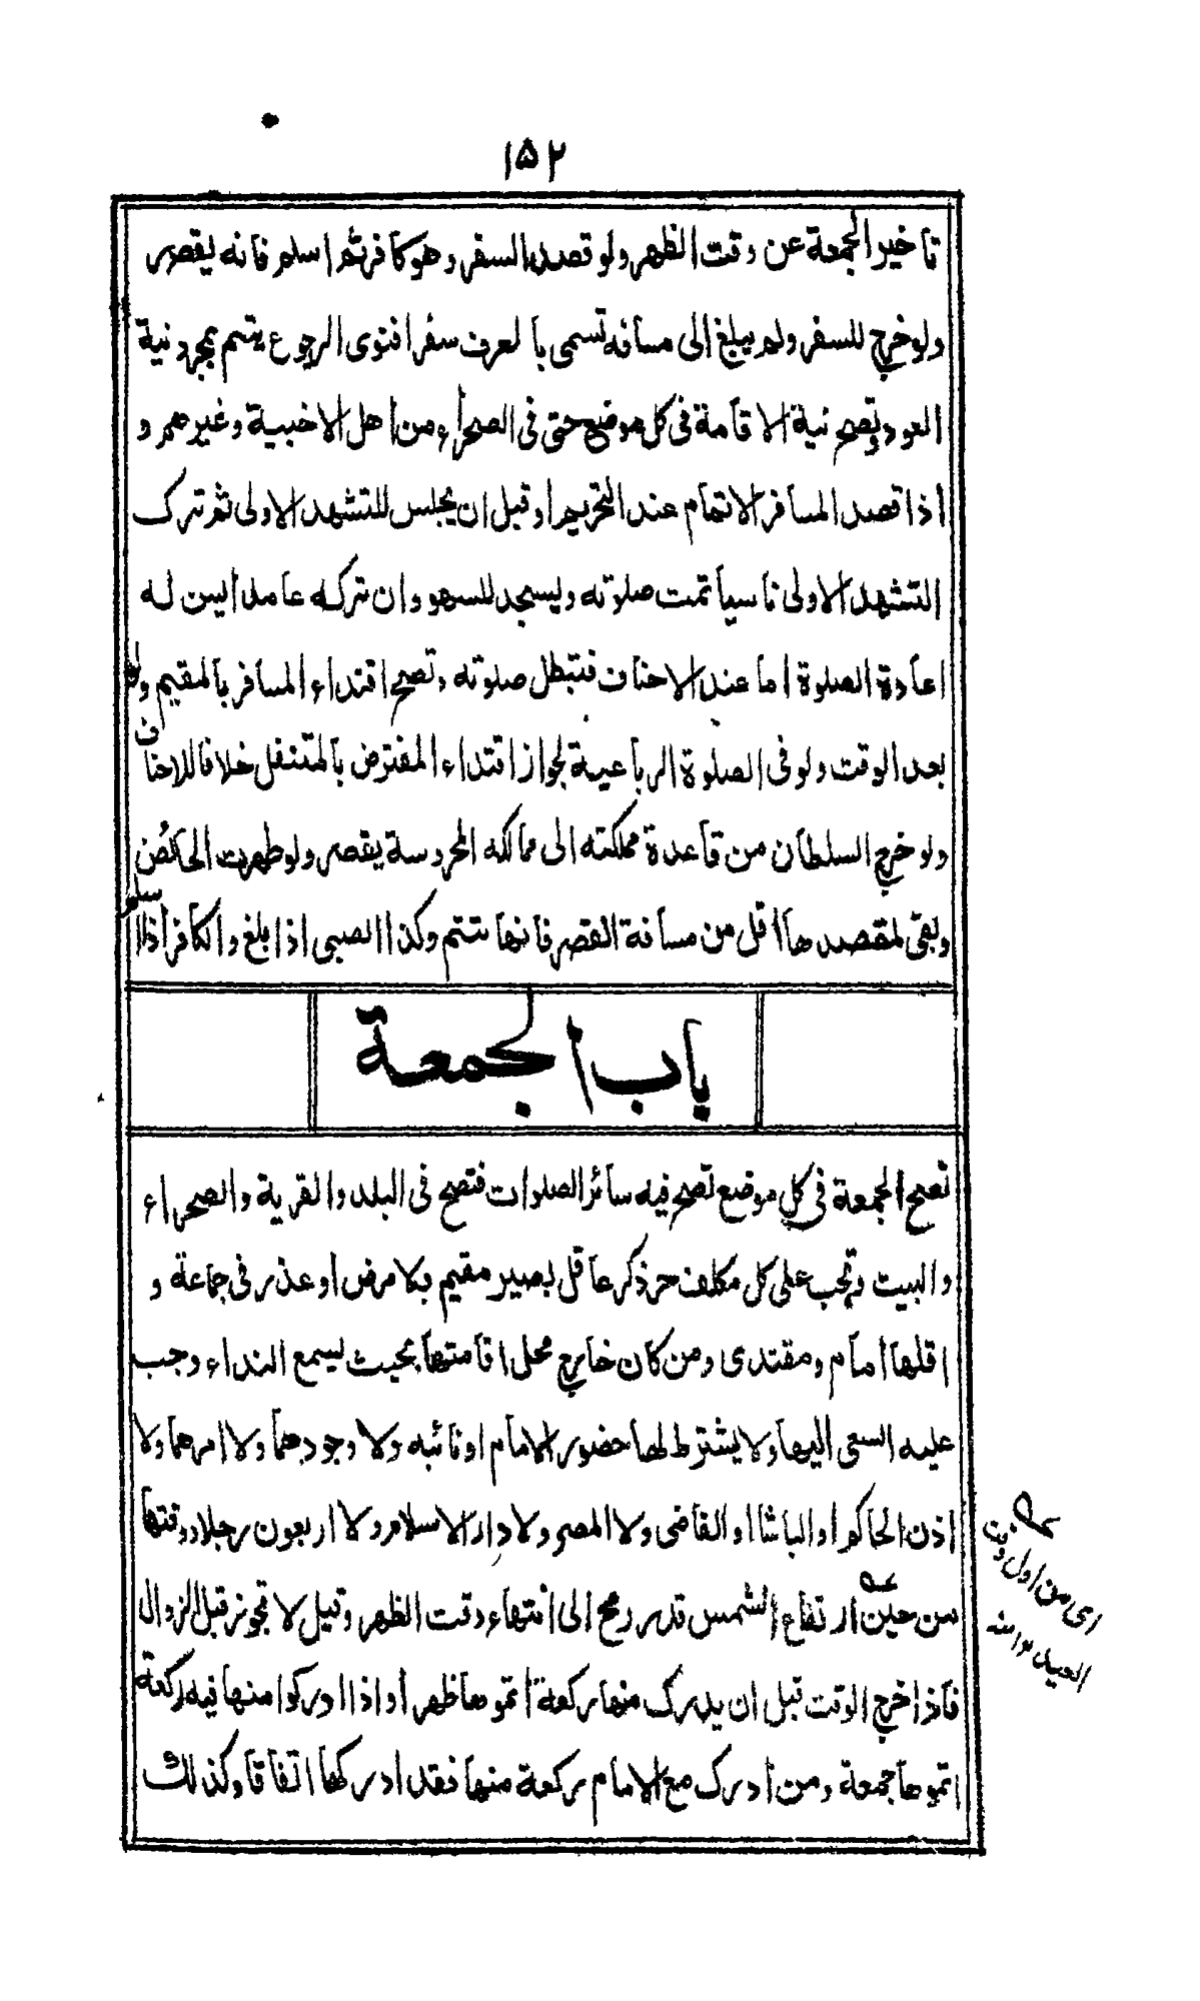 ١٥٢
تاخير الجمعة عن وقت الظهر ولو قصد السفر وهو كافر ثم اسلم فانه يقصر
ولو خرج للسفر ولم يبلغ الى مسافه تسمى بالعرف سفرا فنوى الرجوع يتم بمجرد نية
العود وتصح نية الاقامة فى كل موضع حتى فى الصحراء من اهل الاخبية وغيرهم و
اذا قصد المسافر الاتمام عند التحريم او قبل ان يجلس للتشهد الاولى ثم ترك
التشهد الاولى ناسيا تمت صلوته وليسجد للسهو وان تركه عامدا ليس له
اعادة الصلوة اما عند الاحناف فتبطل صلوته وتصح اقتداء المسافر بالمقيم ولو
بعد الوقت ولو فى الصلوة الرباعية لجواز اقتداء المفترض بالمتنفل خلافا للاحناف
ولو خرج السلطان من قاعدة مملكته الى ممالكه المحروسة يقصر ولو طهرت الحائض
وبقى لمقصدها اقل من مسافة القصر فانها تتم وكذا الصبى اذا بلغ والكافر اذا اسلم
باب الجمعة
تصح الجمعة فى كل موضع تصح فيه سائر الصلوات فتصح فى البلد والقرية والصحراء
والبيت وتجب على كل مكلف حر ذكر عاقل بصير مقيم بلا مرض او عذر فى جماعة و
اقلها امام ومقتدى ومن كان خارج محل اقامتها بحيث يسمع النداء وجب
عليه السعى اليها ولا يشترط لها حضور الامام او نائبه ولا وجودهما ولا امرهما ولا
اذن الحاكم او الباشا او القاضى ولا المصر ولا دار الاسلام ولا اربعون رجلا ووقتها
من حين ارتفاع الشمس قدر رمح الى انتهاء وقت الظهر وقيل لا تجوز قبل الزوال
فاذا خرج الوقت قبل ان يدرك منها ركعة اتموها ظهرا واذا ادركوا منها فيه ركعة
اتموها جمعة ومن ادرك مع الامام ركعة منها فقد ادركها اتفاقا وكذلك
اى من اول وقت
العيد